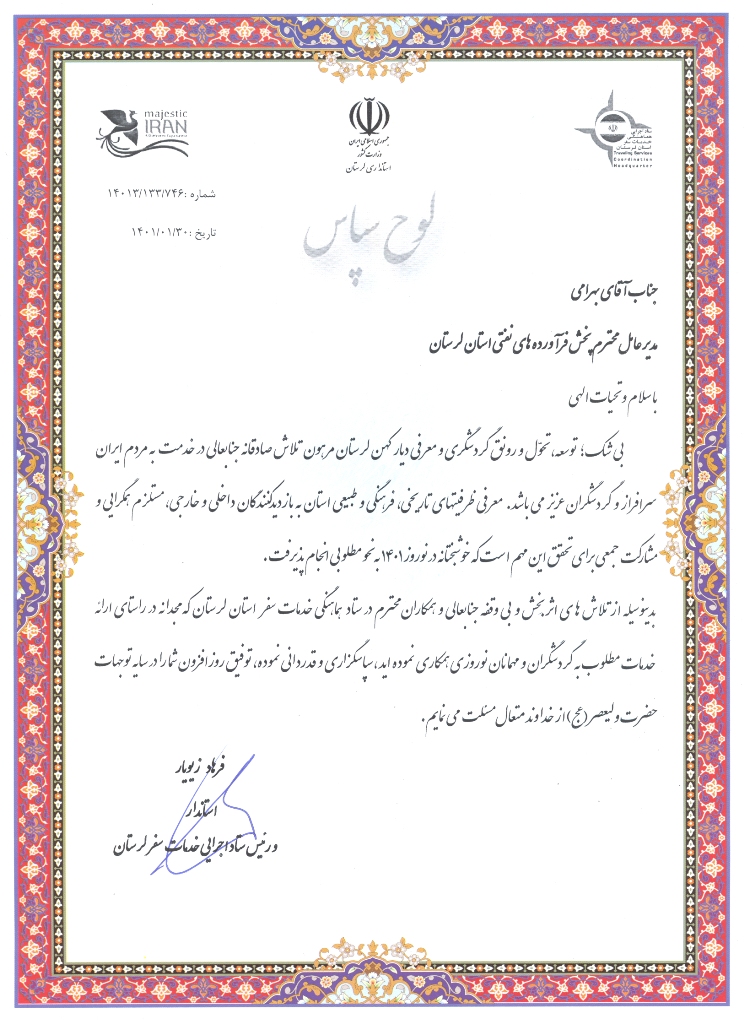 majestic
IRAN
جمهوری اسلامی ایران
وزارت کشور
استانداری لرستان
ستاد اجرایی
هماهنگی
خدمات سفر
استان لرستان
Traveling Services
Coordination
Headquarter
شماره :۱۴۰۱۳/۱۳۳/۷۴۶
تاریخ :۱۴۰۱/۰۱/۳۰
لوح سپاس
جناب آقای بهرامی
مدیر عامل محترم پخش فرآورده های نفتی استان لرستان
با سلام و تحیات الهی
بی شک؛ توسعه، تحوّل و رونق گردشگری و معرفی دیار کهن لرستان مرهون تلاش صادقانه جنابعالی در خدمت به مردم ایران
سرافراز و گردشگران عزیز می باشد. معرفی ظرفیتهای تاریخی، فرهنگی و طبیعی استان به بازدیدکنندگان داخلی و خارجی، مستلزم همگرایی و
مشارکت جمعی برای تحقق این مهم است که خوشبختانه در نوروز ۱۴۰۱ به نحو مطلوبی انجام پذیرفت.
بدینوسیله از تلاش های اثربخش و بی وقفه جنابعالی و همکاران محترم در ستاد هماهنگی خدمات سفر استان لرستان که مجدانه در راستای ارائه
خدمات مطلوب به گردشگران و مهمانان نوروزی همکاری نموده اید، سپاسگزاری و قدردانی نموده، توفیق روزافزون شما را در سایه توجهات
حضرت ولیعصر (عج) از خداوند متعال مسئلت می نمایم.
فرهاد زیویار
استاندار
و رئیس ستاد اجرایی خدمات سفر لرستان